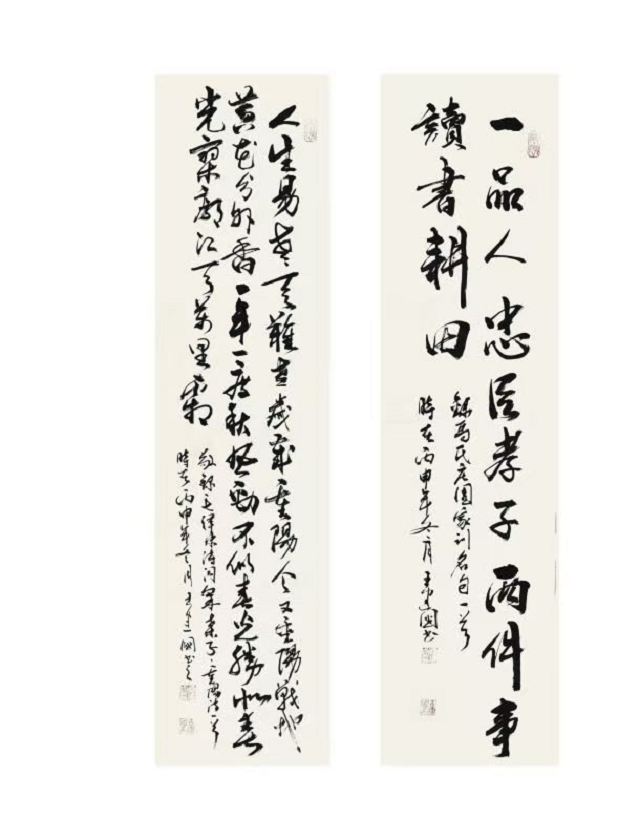 一品人忠臣孝子两件事
讀書耕田
錄馬氏庄園家训名句一首
時在丙申年冬月王國书
人生易老天難老歲歲重陽今又重陽戰地
黄花分外香一年一度秋風勁不似春光勝似春
光寥廓江天萬里霜
敬錄毛澤東詩詞采桑子重陽詩一首
時在丙申年冬月王國书